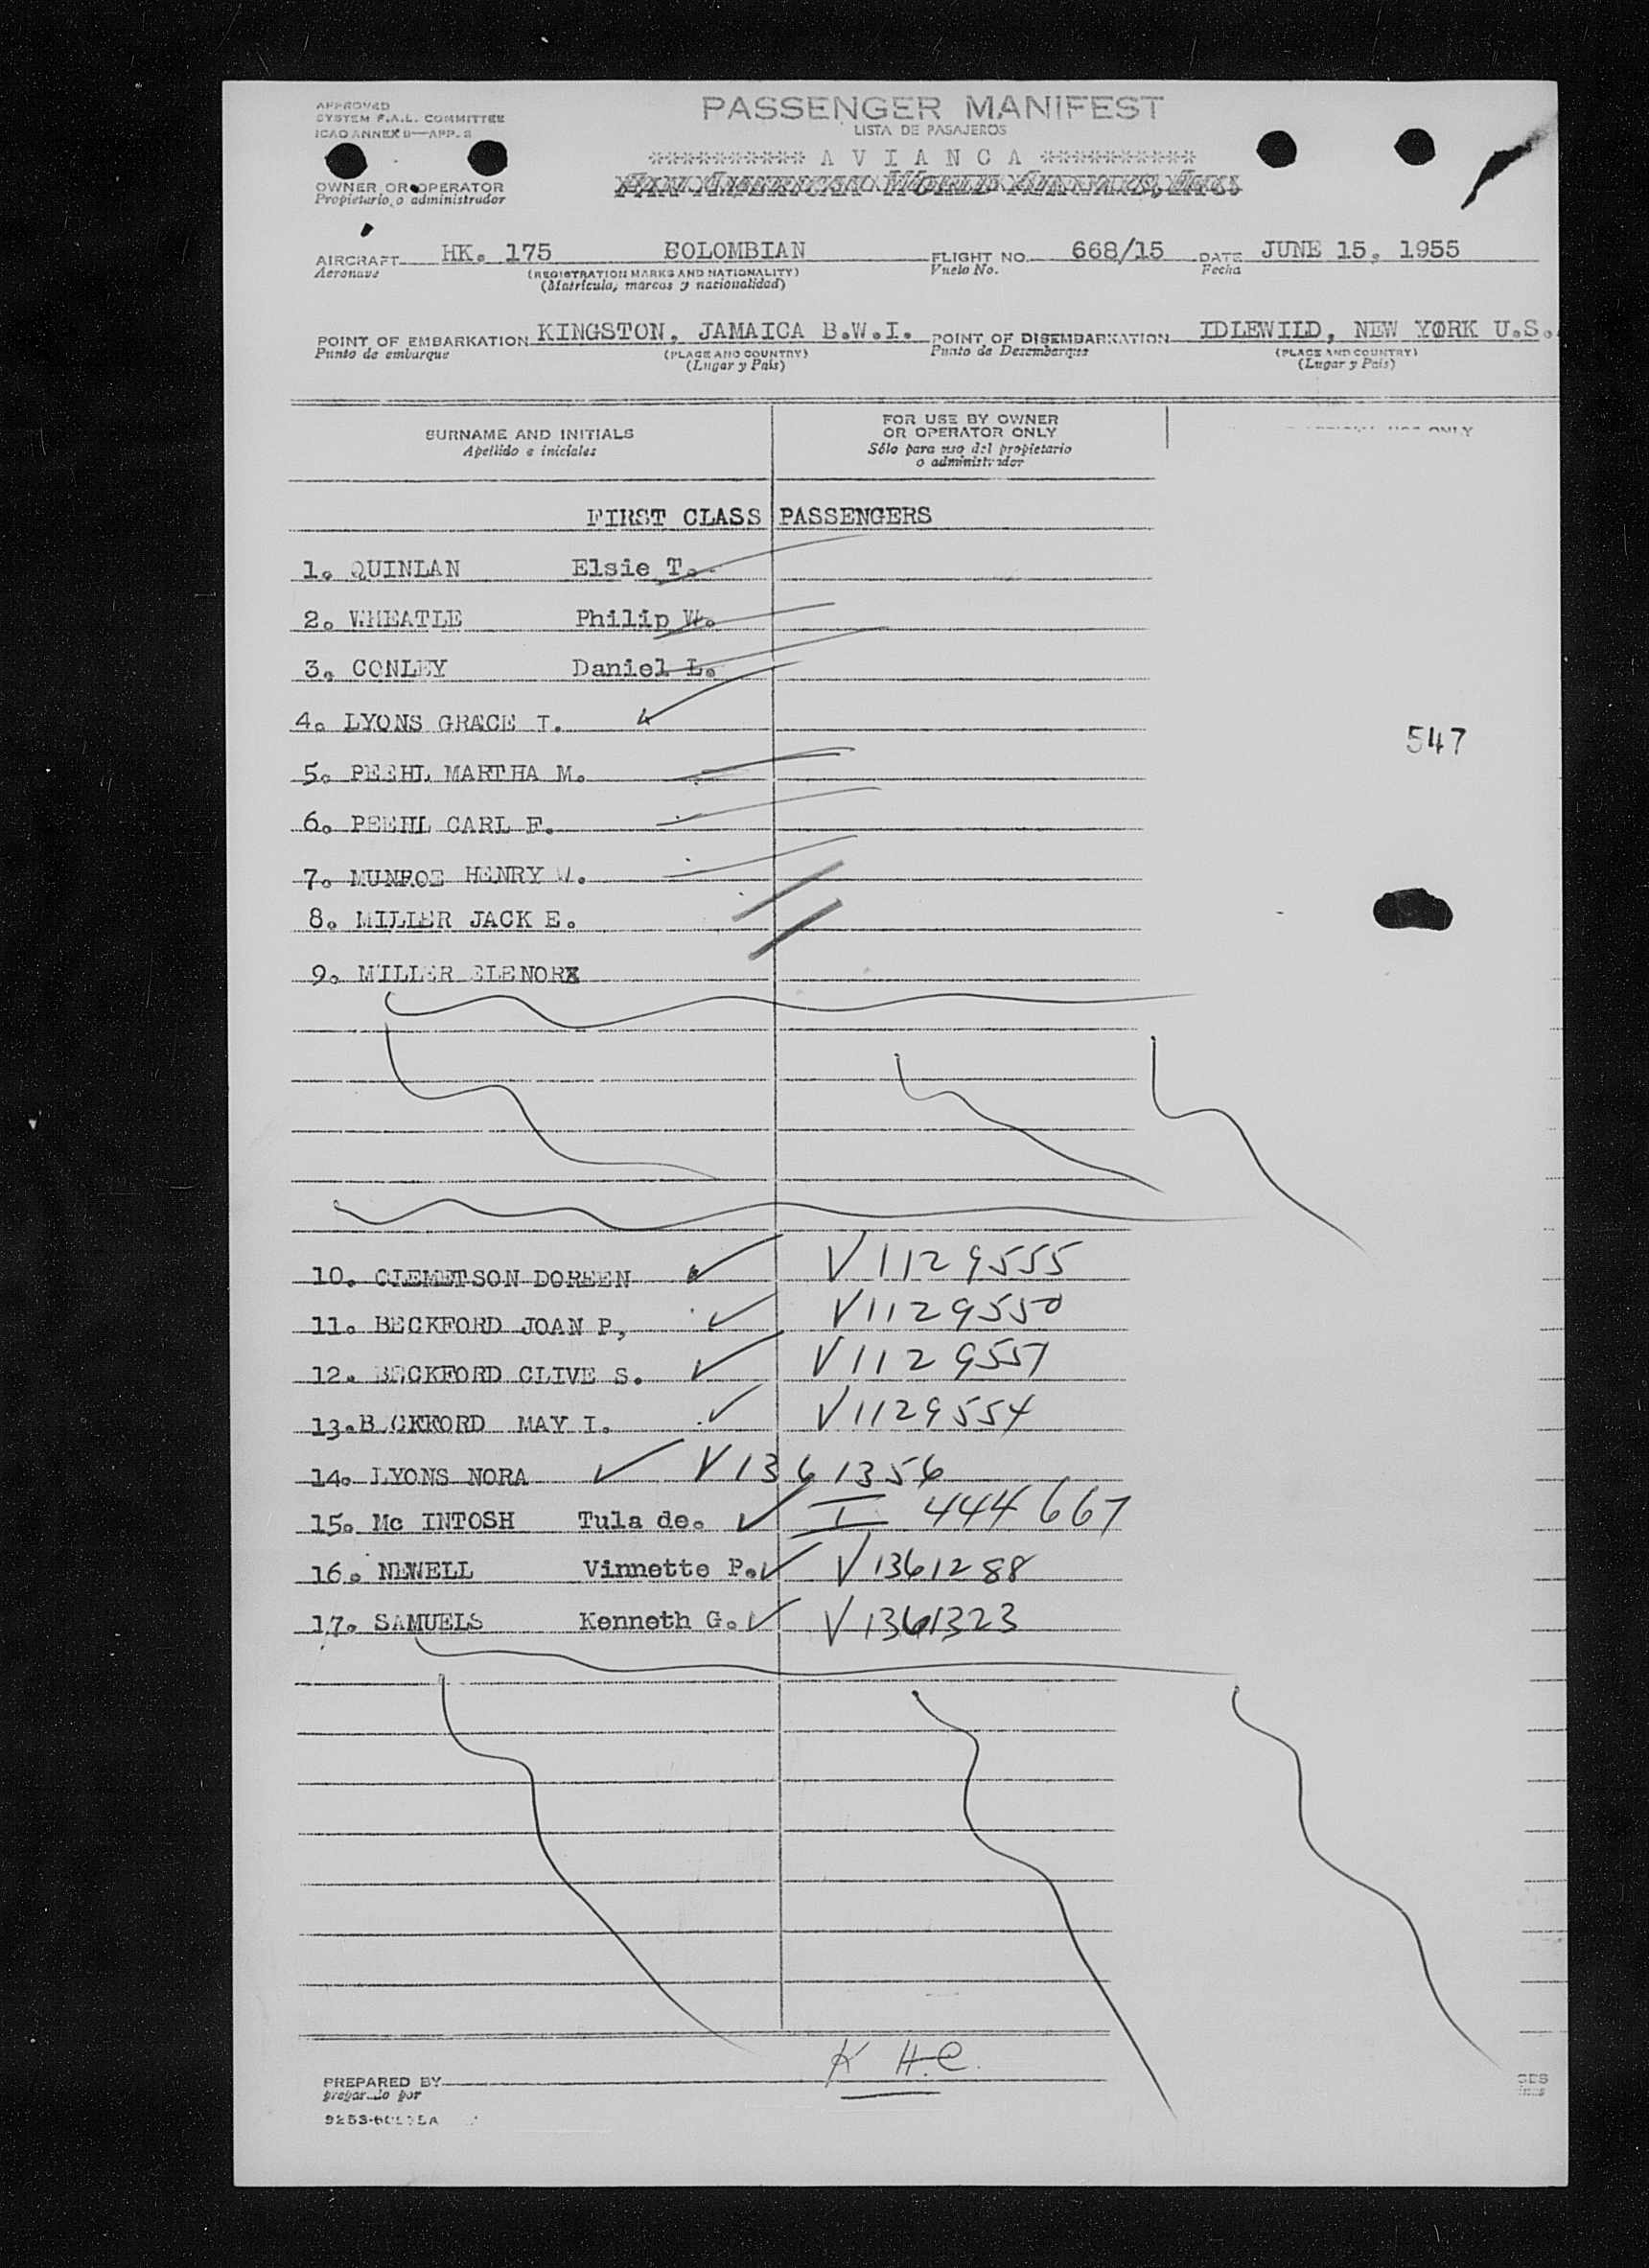 APPROVED
SYSTEM F.A.L. COMMITTEE
ICAO ANNEX 9—APP. 3
PASSENGER MANIFEST
LISTA DE PASAJEROS
********** A V I A N C A **********
PAN AMERICAN WORLD AIRWAYS, INC.
OWNER OR OPERATOR
Propietario, o administrador
AIRCRAFT HK. 175 EOLOMBIAN FLIGHT NO. 668/15 DATE JUNE 15, 1955
Aeronave (REGISTRATION MARKS AND NATIONALITY) Vuelo No. Fecha
(Matrícula, marcas y nacionalidad)
POINT OF EMBARKATION KINGSTON, JAMAICA B.W.I. POINT OF DISEMBARKATION IDLEWILD, NEW YORK U.S.
Punto de embarque (PLACE AND COUNTRY) Punto de Desembarque (PLACE AND COUNTRY)
(Lugar y País) (Lugar y País)
SURNAME AND INITIALS FOR USE BY OWNER OR OPERATOR ONLY USE ONLY
Apellido e iniciales Sólo para uso del propietario o administrador
FIRST CLASS PASSENGERS
1. QUINLAN Elsie T.
2. WHEATLE Philip W.
3. CONLEY Daniel L.
4. LYONS GRACE T.
547
5. PEEHL MARTHA M.
6. PEEHL CARL F.
7. MUNROE HENRY W.
8. MILLER JACK E.
9. MILLER ELENORX
10. CLEMETSON DOREEN V1129555
11. BECKFORD JOAN P, V1129550
12. BECKFORD CLIVE S. V1129551
13. B CKFORD MAY I. V1129554
14. LYONS NORA V1361356
15. Mc INTOSH Tula de. I 444667
16. NEWELL Vinnette P. V1361288
17. SAMUELS Kenneth G. V1361323
K H.C.
PREPARED BY
preparado por